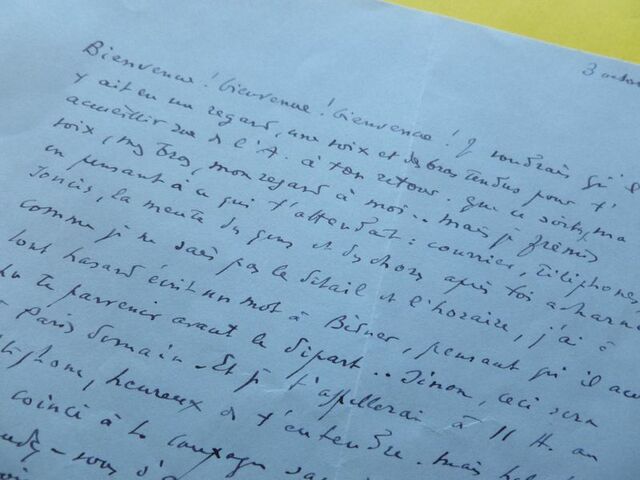 3 octob
Bienvenue ! bienvenue ! bienvenue ! Je voudrais qu'il
y ait eu un regard, une voix et des bras tendus pour t'
accueillir rue de l'A. à ton retour. Que ce soit, ma
voix, mes bras, mon regard à moi.. mais je frémis
en pensant à ce qui t'attendait : courrier, téléphones,
soucis, la meute des gens et des choses après toi acharné
comme je ne sais pas le détail et l'horaire, j'ai à
tout hasard écrit un mot à Bisner, pensant qu'il
te parvenir avant le départ.. Sinon, ceci sera
à Paris demain. Et je t'appellerai à 11 H. au
téléphone, heureux de t'entendre. mais
coincé à la campagne sans